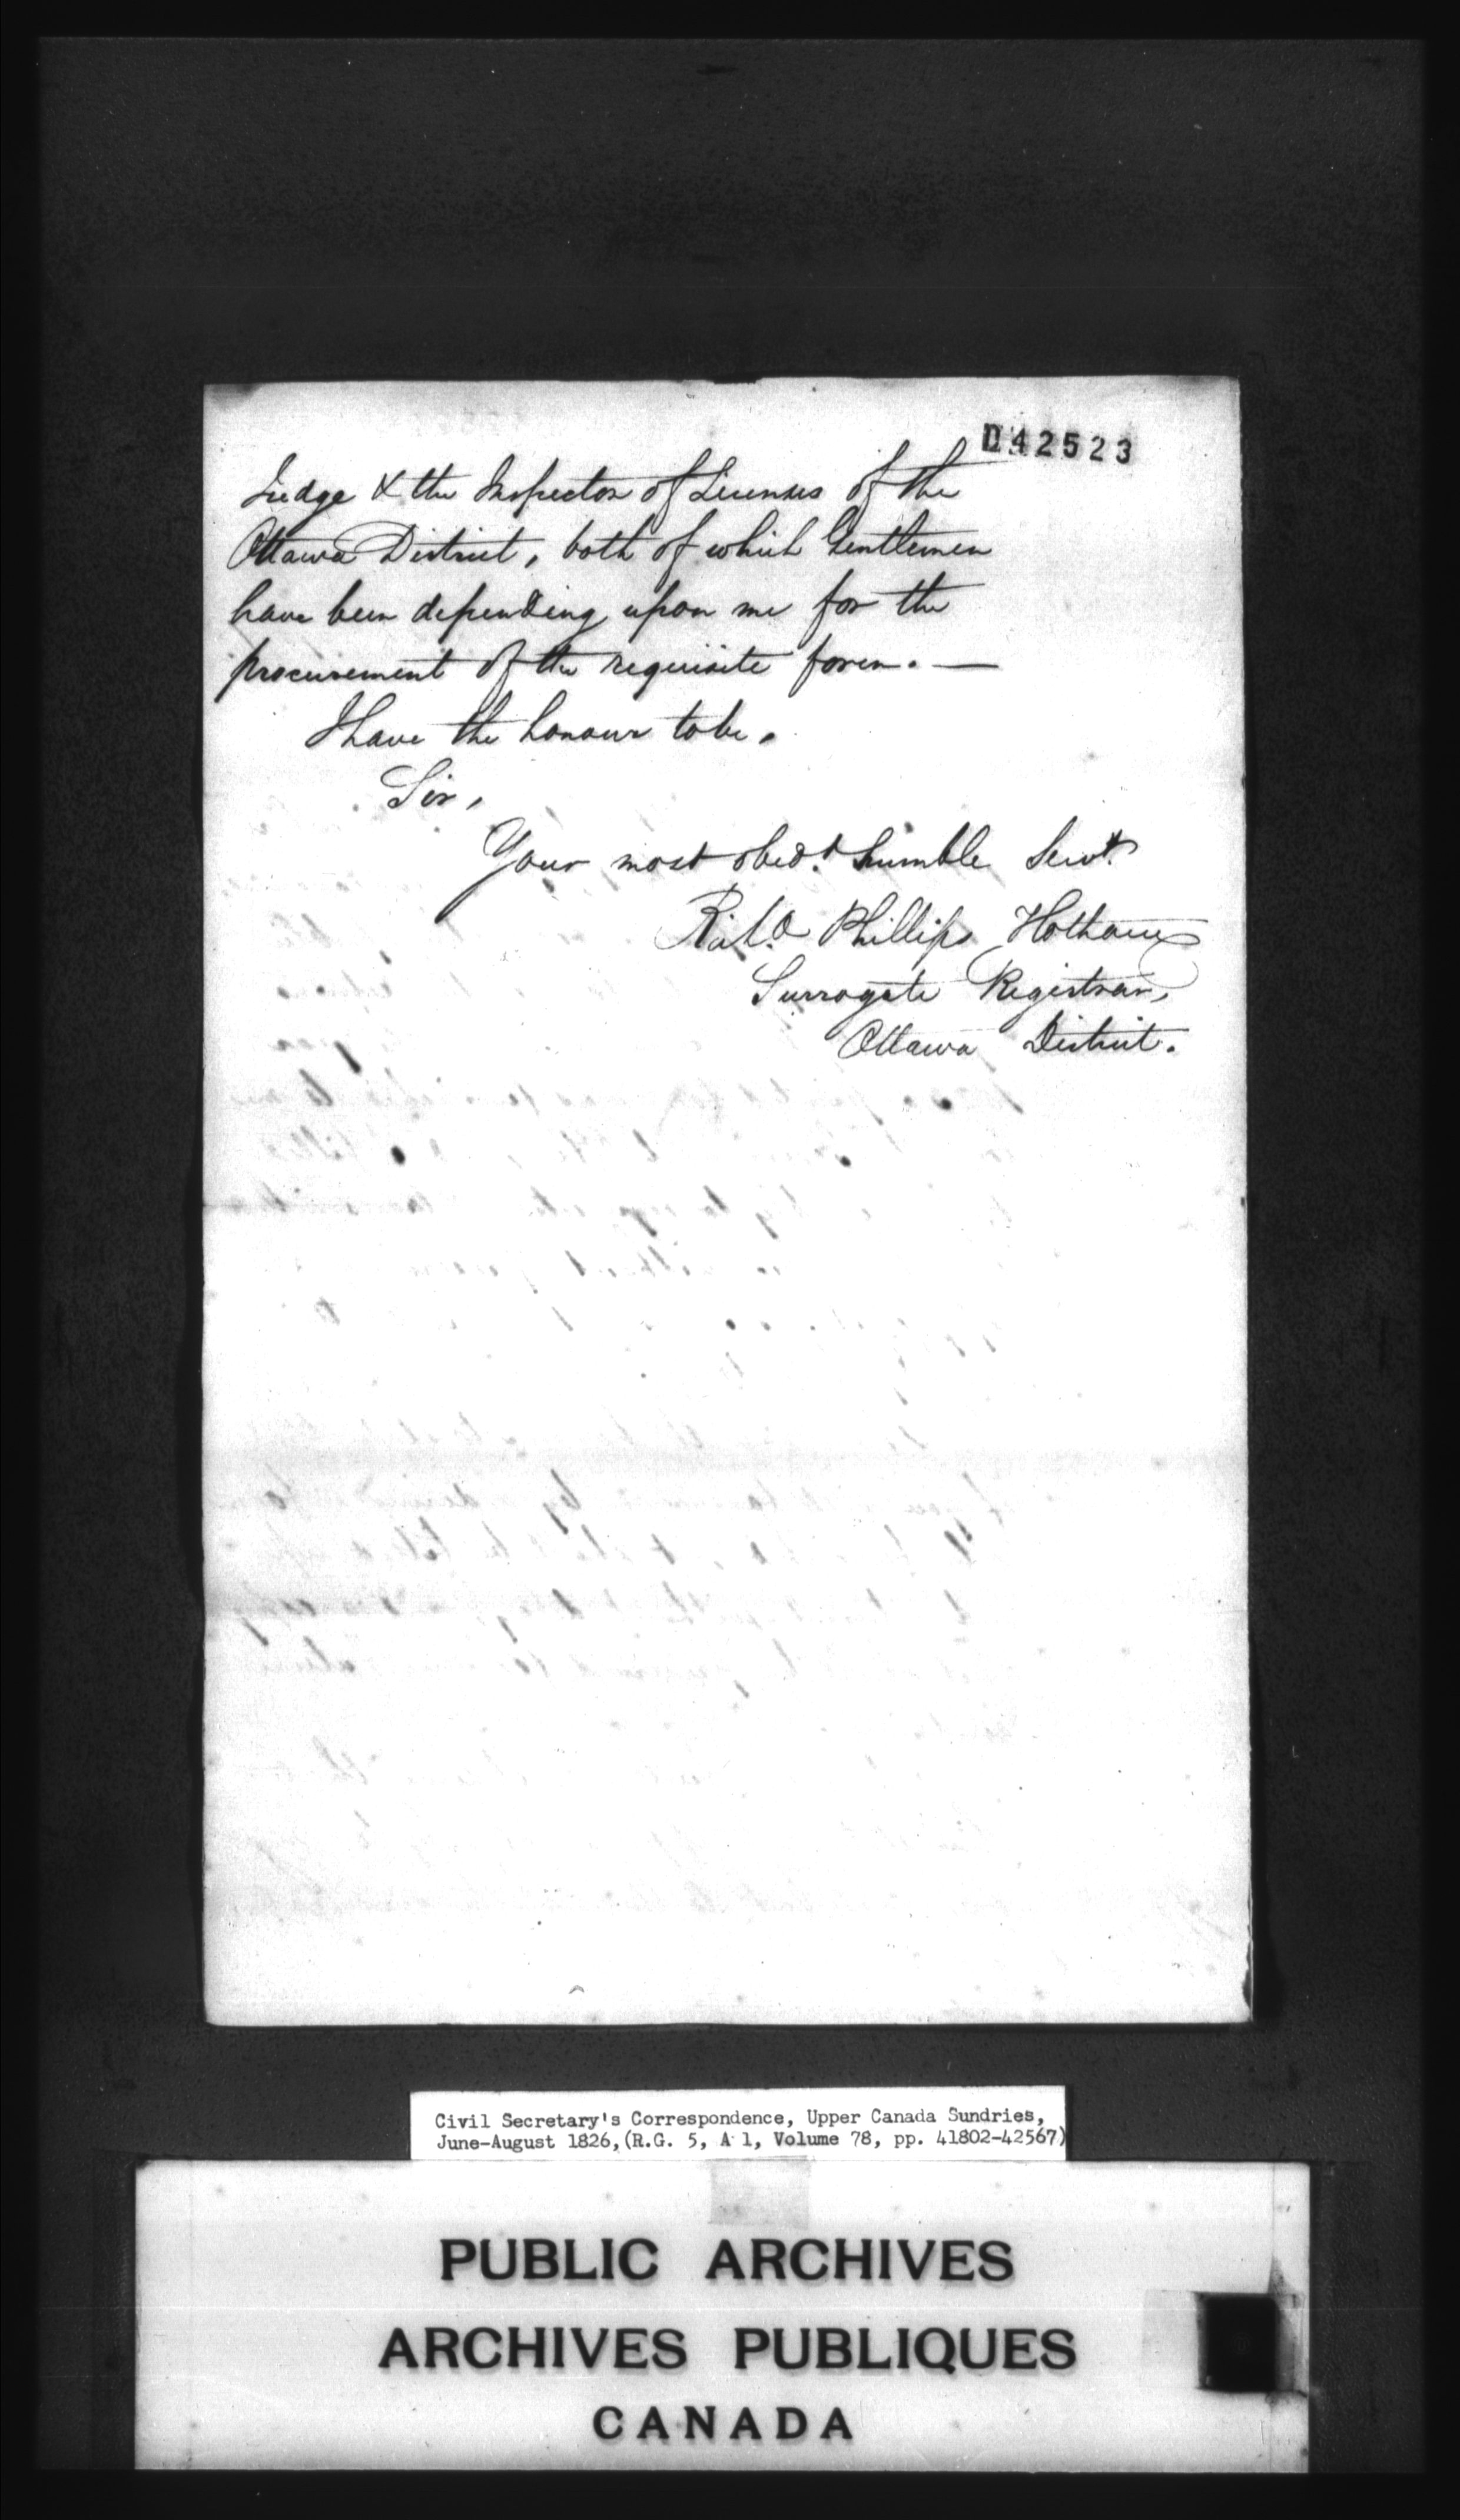 D42523
Judge & the Inspector of Licenses of the
Ottawa District, both of which Gentlemen
have been depending upon me for the
procurement of the requisite form. —
I have the honour to be,
Sir,
Your most obed.t humble Serv.t
Rich.d Phillips Hotham
Surrogate Registrar,
Ottawa District.
Civil Secretary's Correspondence, Upper Canada Sundries,
June-August 1826, (R.G. 5, A 1, Volume 78, pp. 41802-42567)
PUBLIC ARCHIVES
ARCHIVES PUBLIQUES
CANADA